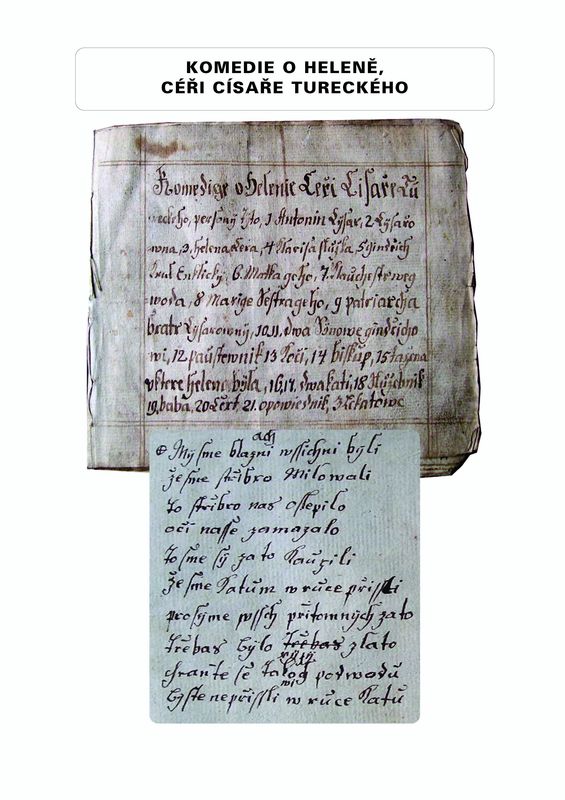 KOMEDIE O HELENĚ,
CÉŘI CÍSAŘE TURECKÉHO
Komedige o Helenie Ceři Cisaře Tu
reckeho, persony tyto, 1 Antonin Cysař, 2 Cysařo
wna, 3, helena dcera, 4 Klarisa služka, 5 Gindřich
Kral Englicky, 6. Matka geho, 7. Klauchestr weg
woda, 8 Marige Sestra geho, 9 patriarcha
bratr Cysarowny, 10 11, dwa Synowe gindřicho
wi, 12 paustewnik 13 Kočí, 14 biskup, 15 ta žena
uktere helena byla, 16, 17, dwa kati, 18 Služebnik
19, baba, 20 Čert, 21. opowiednik, 3ti katowe
ach
My sme blazni wssichni byli
že sme střibro Milowali
to střibro nas osslepilo
oči nasse zamazalo
to sme sy za to Kaupili
že sme Katum w ruce přissli
prosyme wssch přitomnych zato
třebas bylo třebas zlato
chraňte se podwodu
byste nepřissli w ruce Katu